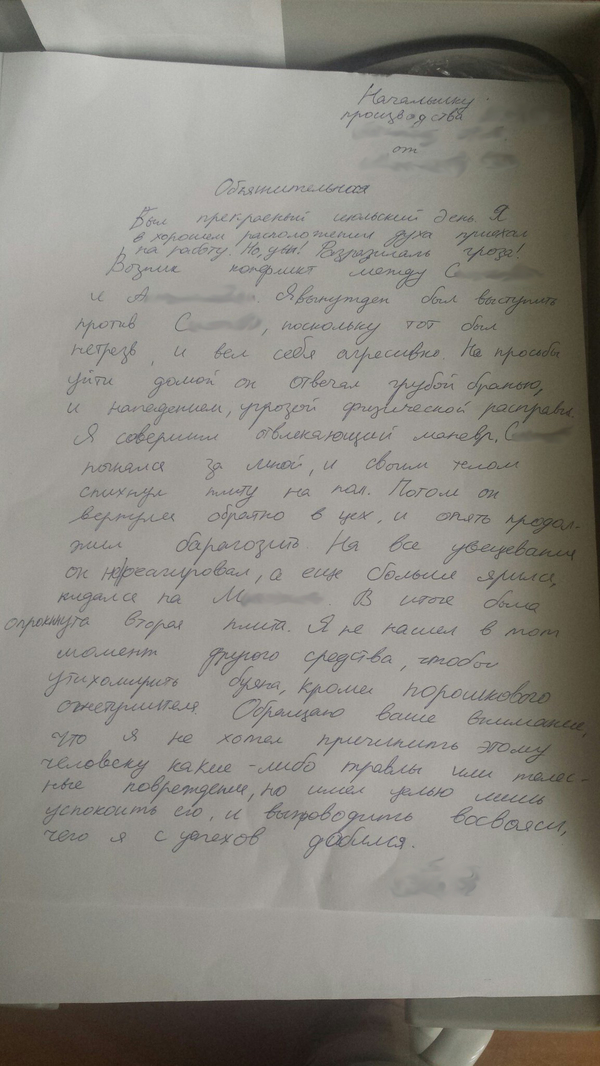 Начальнику
производства
от
Объяснительная
Был прекрасный июльский день. Я
в хорошем расположении духа приехал
на работу. Но, увы! Разразилась гроза!
Возник конфликт между С
и А . Я вынужден был выступить
против С , поскольку тот был
нетрезв, и вел себя агресивно. На просьбы
уйти домой он отвечал грубой бранью,
и нападением, угрозой физической расправы.
Я совершил отвлекающий маневр. С
погнался за мной, и своим телом
спихнул плиту на пол. Потом он
вернулся обратно в цех, и опять продол-
жил барагозить. На все увещевания
он не реагировал, а еще больше ярился,
кидался на М . В итоге была
опрокинута вторая плита. Я не нашел в тот
момент другого средства, чтобы
утихомирить буяна, кроме порошкового
огнетушителя. Обращаю ваше внимание,
что я не хотел причинить этому
человеку какие-либо травмы или телес-
ные повреждения, но имел целью лишь
успокоить его, и выпроводить восвояси,
чего я с успехов добился.